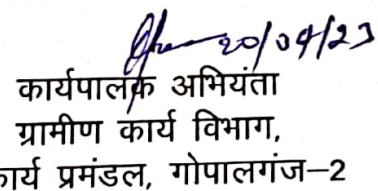 20/04/23
कार्यपालक अभियंता
ग्रामीण कार्य विभाग,
कार्य प्रमंडल, गोपालगंज-2